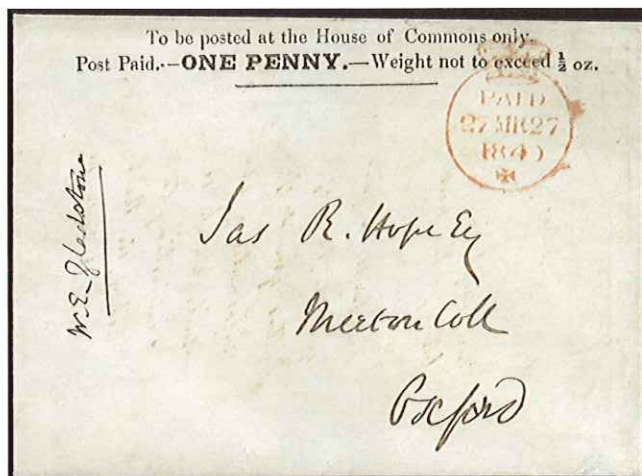 To be posted at the House of Commons only.
Post Paid.—ONE PENNY.—Weight not to exceed ½ oz.
PAID
27 MR 27
1840
W.E. Gladstone
Jas R. Hope Esq
Merton Coll
Oxford